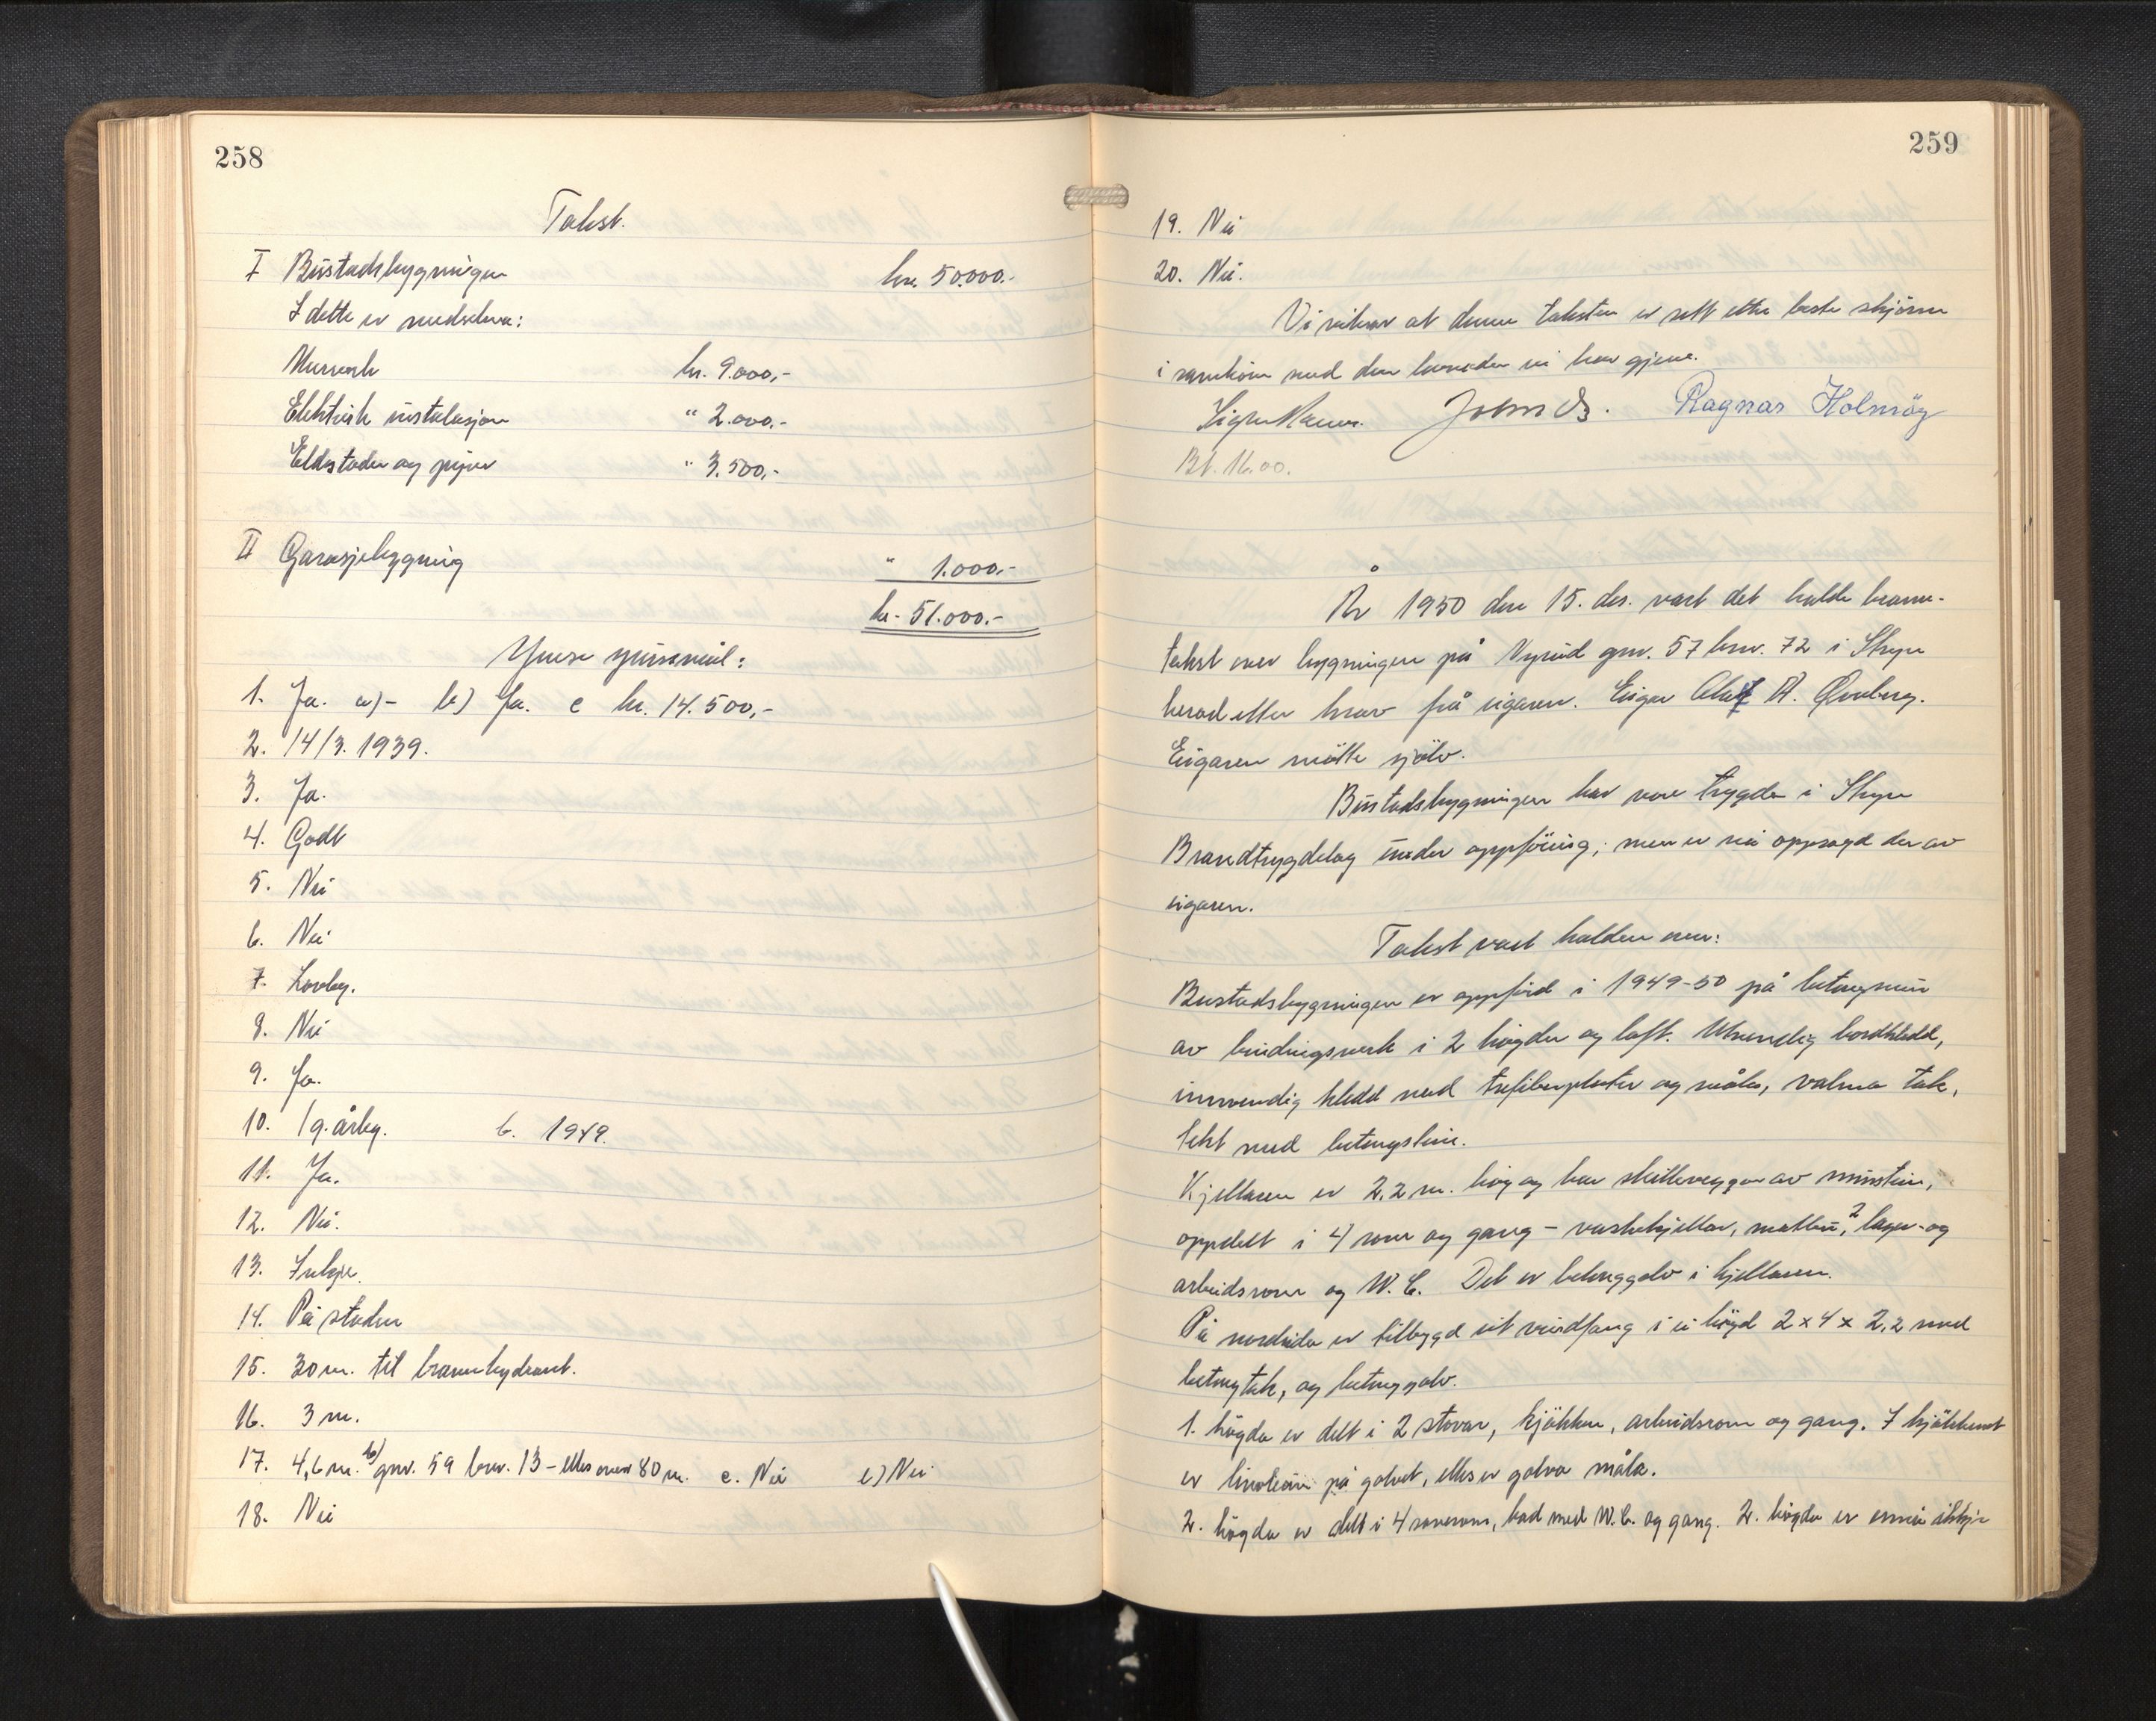 258
Takst.
I Bustadsbygningen kr. 50.000.-
I dette er medrekna:
Murverk kr. 9.000,-
Elektrisk instalasjon " 2.000,-
Eldstader og piper " 3.500,-
II Garasjebygning " 1.000.-
kr. 51.000.-
Ymse spursmål:
1. Ja. a) - b) Ja. c kr. 14.500,-
2. 14/3. 1939.
3. Ja.
4. Godt
5. Nei
6. Nei
7. Lovleg.
8. Nei
9. Ja.
10. 1 g. årleg. b. 1949.
11. Ja.
12. Nei.
13. Inkje.
14. På staden
15. 30 m. til brannhydrant.
16. 3 m.
17. 4,6 m. b) gnr. 59 bnr. 13 - elles over 80 m. c. Nei e) Nei
18. Nei
259
19. Nei
20. Nei.
Vi vitnar at denne taksten er sett etter beste skjønn
i samhøve med den lovnaden vi har gjeve.
Ragnar Holmöy
Bt. 16.00.
År 1950 den 15. des. vart det halde brann-
takst over bygningen på Nyrud gnr. 57 bnr. 72 i Stryn
herad etter krav frå eigaren. Eigar Olaf A. Øvreberg.
Eigaren møtte sjølv.
Bustadsbygningen har vore trygda i Stryn
Brandtrygdelag under oppføring; men er no oppsagd der av
eigaren.
Takst vart halden over:
Bustadsbygningen er oppførd i 1949-50 på betongmur
av bindingsverk i 2 høgder og loft. Utvendig bordkledd,
innvendig kledd med trefiberplater og måla, valma tak,
tekt med betongstein.
Kjellaren er 2,2 m. høg og har skilleveggar av murstein,
oppdelt i 4 rom og gang - vaskekjellar, matbu, 2 lager- og
arbeidsrom og W.C. Det er betonggolv i kjellaren.
På nordsida er tilbygd eit vindfang i ei høgd 2 x 4 x 2,2 med
betongtak, og betonggolv.
1. høgda er delt i 2 stover, kjøkken, arbeidsrom og gang. I kjøkkenet
er linoleum på golvet, elles er golva måla.
2. høgda er delt i 4 soverom, bad med W.C. og gang. 2. høgda er ennå ikkje